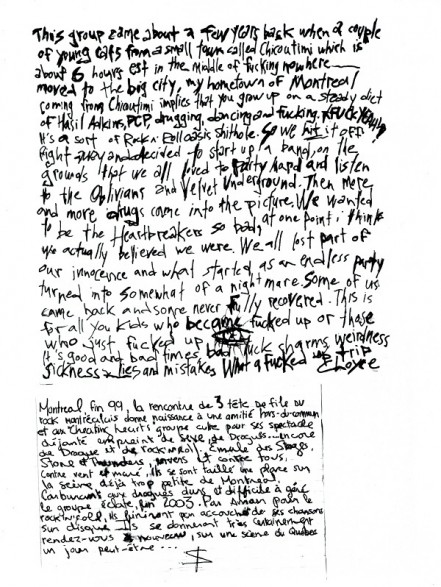 This group came about a few years back when a couple
of young cats from a small town called Chicoutimi which is
about 6 hours est in the middle of fucking nowhere
moved to the big city, my hometown of Montreal
coming from Chicoutimi implies that you grow up on a steady diet
of Hasil Adkins, PCP, drugging, dancing and fucking.
It's a sort of Rock n Roll oasis shithole. So we hit it off
Right away and decided to start up a band, on the
grounds that we all loved to Party hard and listen
to the Oblivians and Velvet Underground. Then more
and more drugs come into the picture. We wanted
to be the Heartbreakers so bad, at one point i think
we actually believed we were. We all lost part of
our innocence and what started as an endless party
turned into somewhat of a nightmare. Some of us
came back and some never fully recovered. This is
for all you kids who became fucked up or those
who just fucked up
It's good and bad times bad luck charms, weirdness
sickness lies and mistakes What a fucked up trip
Montreal, fin 99, la rencontre de 3 tête de file du
rock montréalais donne naissance à une amitié hors-du-commun
et aux Cheating hearts groupe culte pour ses spectacles
déjanté empreint de sexe, de Drogues... encore
de Drogue et de rock'n'roll. Emule des Stooges,
Stones et Thunders, envers et contre tous,
contre vent et marée, ils se sont taillé une place sur
la scène déjà trop petite de Montréal.
Carburant aux drogues dures et difficile à gérer
le groupe éclate, fin 2003. Par Amour pour le
rock'n'roll, ils finiront par accoucher de ses chansons
sur disque. Ils se donneront très certainement
rendez-vous à nouveau, sur une scène du Québec
un jour peut-être...